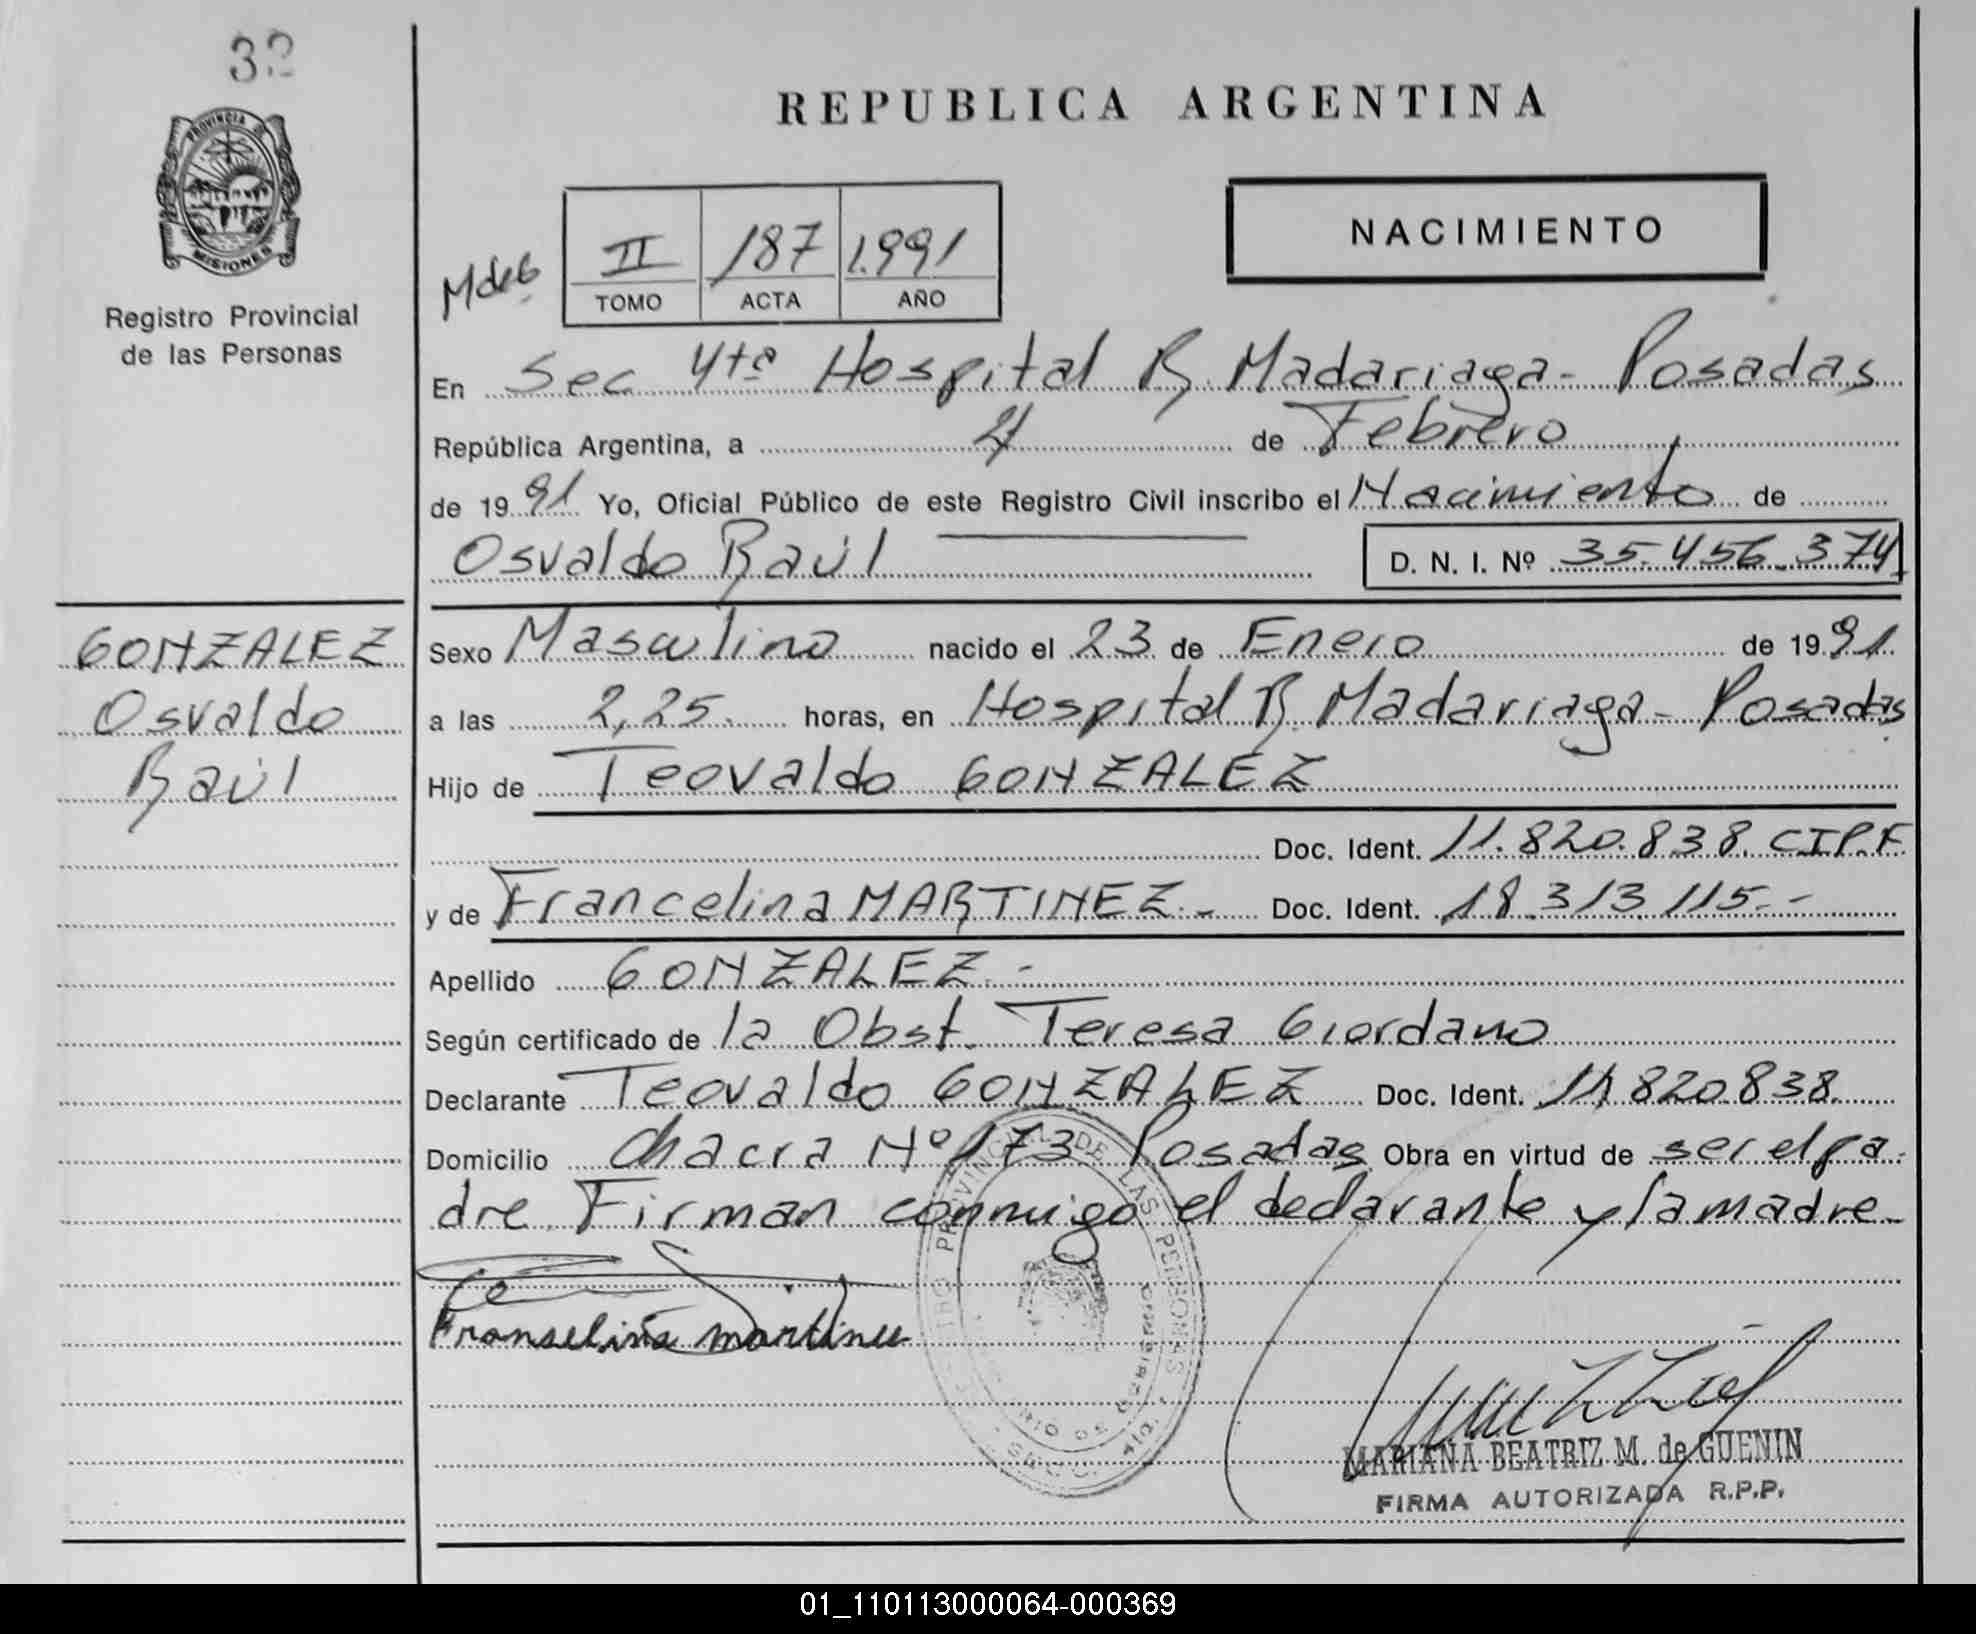 32
PROVINCIA DE
MISIONES
Registro Provincial
de las Personas
REPUBLICA ARGENTINA
NACIMIENTO
II 187 1.991
TOMO ACTA AÑO
En Sec 4ta Hospital R. Madariaga - Posadas
República Argentina, a 4 de Febrero
de 1991 Yo, Oficial Público de este Registro Civil inscribo el Nacimiento de
Osvaldo Raúl D. N. I. Nº 35.456.374
GONZALEZ
Osvaldo
Raúl
Sexo Masculino nacido el 23 de Enero de 1991
a las 2,25. horas, en Hospital R. Madariaga - Posadas
Hijo de Teovaldo GONZALEZ
Doc. Ident. 11.820.838. CIP.F.
y de Francelina MARTINEZ.- Doc. Ident. 18.313.115.-
Apellido GONZALEZ.-
Según certificado de la Obst. Teresa Giordano
Declarante Teovaldo GONZALEZ Doc. Ident. 11.820.838.
Domicilio Chacra Nº 173 Posadas Obra en virtud de ser el pa-
dre. Firman conmigo el declarante y la madre-
Franselina martinez
PROVINCIAL DE LAS PERSONAS
MARIANA BEATRIZ M. de GUENIN
FIRMA AUTORIZADA R.P.P.
01_110113000064-000369